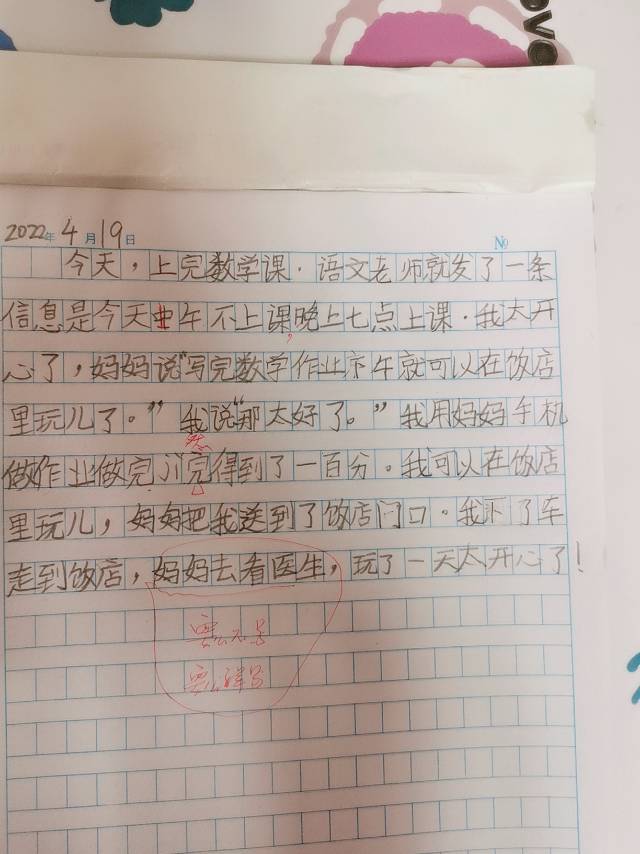 OVO
2022年4月19日
№
今天，上完数学课.语文老师就发了一条
信息是今天中午不上课,晚上七点上课.我太开
心了，妈妈说“写完数学作业下午就可以在饭店
里玩儿了。”我说“那太好了。”我用妈妈手机
然
做作业做完 完得到了一百分。我可以在饭店
里玩儿，妈妈把我送到了饭店门口。我下了车
走到饭店，妈妈去看医生，玩了一天太开心了！